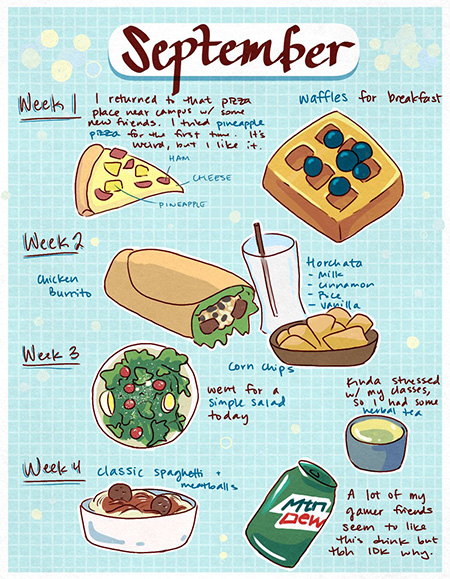 September
Week 1
I returned to that pizza
place near campus w/ some
new friends. I tried pineapple
pizza for the first time. It's
weird, but I like it.
waffles for breakfast
HAM
CHEESE
PINEAPPLE
Week 2
Chicken
Burrito
Horchata
- Milk
- Cinnamon
- Rice
- Vanilla
Corn Chips
Week 3
went for a
simple salad
today
Kinda stressed
w/ my classes,
so I had some
herbal tea
Week 4
classic spaghetti +
meatballs
Mtn
Dew
A lot of my
gamer friends
seem to like
this drink but
tbh IDK why.